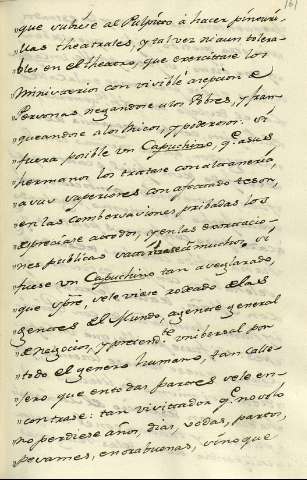 161
"que subiese al Pulpito à hacer pinturi-
"llas theatrales, y tal vez ni aun tolera-
"bles en el theatro, que exercitase los
"Ministerios con visible acepcion de
"Personas negandose a los Pobres, y fran-
"queandose a los Ricos, y poderosos: si
"fuera posible un Capuchino, q.e a sus
"hermanos los tratase con altaneria,
"a sus superiores con afectado teson,
"en las combersaciones pribadas los
"depreciase a todos, y en las exortacio-
"nes publicas a muchos, si
"fuese un Capuchino tan
"que spre, se le viese rodeado de las
"gentes del Mundo, agente general
"de negocios, y pretend.te unibersal por
"todo el genero humano, tan calle-
"jero que en todas partes se le en-
"contrase: tan visitador q.e no solo
"no perdiese años, dias, vodas, partos,
"pesames, enorabuenas, sino que